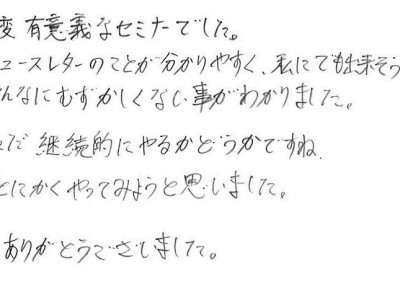 変有意義なセミナーでした。
ュースレターのことが分かりやすく、私にでも出来そう
んなにむずかしくない事がわかりました。
だ継続的にやるかどうかですね
とにかくやってみようと思いました。
ありがとうございました。